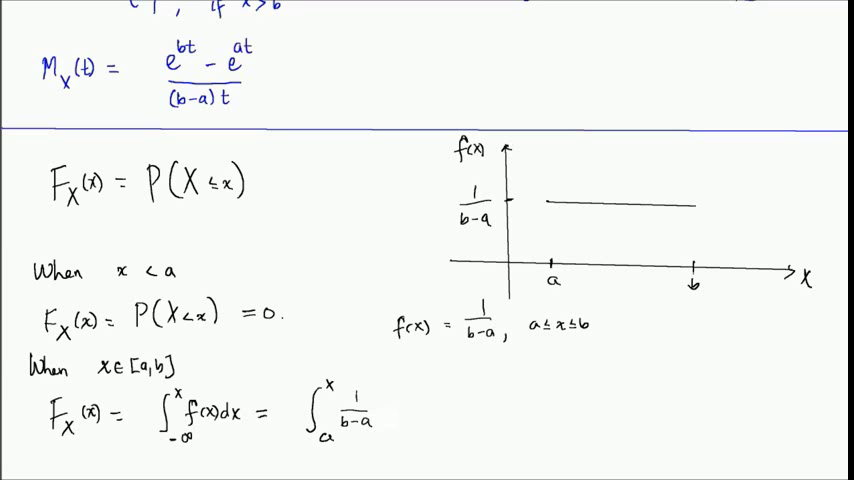 1, if x>b
M_X(t) = \frac{e^{bt} - e^{at}}{(b-a)t}
F_X(x) = P(X ≤ x)
When x < a
F_X(x) = P(X<x) = 0.
When x∈[a,b]
F_X(x) = \int_{-∞}^{x} f(x)dx = \int_{a}^{x} \frac{1}{b-a}
f(x)
\frac{1}{b-a}
a b X
f(x) = \frac{1}{b-a}, a≤x≤b